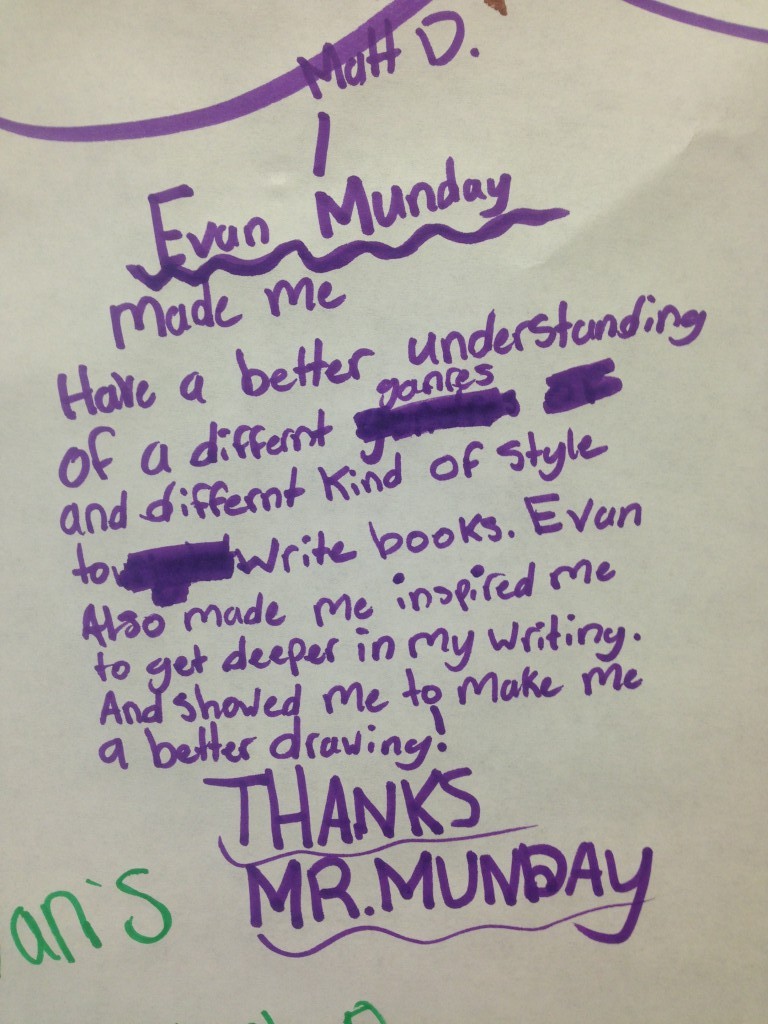 Matt D.
Evan Munday
made me
Have a better understanding
ganres
of a differnt
and differnt kind of style
to write books. Evan
Also made me inspired me
to get deeper in my writing.
And showed me to make me
a better drawing!
THANKS
MR. MUNDAY
an's